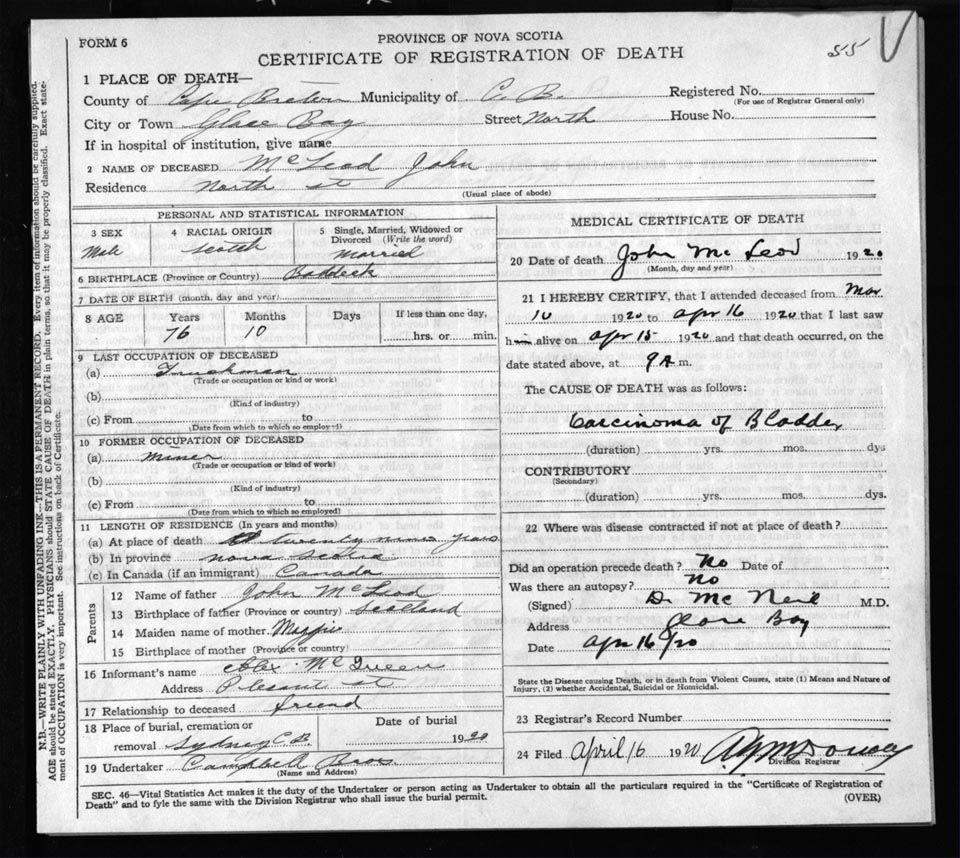 FORM 6
PROVINCE OF NOVA SCOTIA
CERTIFICATE OF REGISTRATION OF DEATH
55
1 PLACE OF DEATH—
County of Cape Breton Municipality of C. B. Registered No.
(For use of Registrar General only)
City or Town Glace Bay Street North House No.
If in hospital of institution, give name
2 NAME OF DECEASED McLeod John
Residence North st
(Usual place of abode)
PERSONAL AND STATISTICAL INFORMATION
3 SEX 4 RACIAL ORIGIN 5 Single, Married, Widowed or Divorced (Write the word)
Male Scotch Married
6 BIRTHPLACE (Province or Country) Baddeck
7 DATE OF BIRTH (month, day and year)
8 AGE Years Months Days If less than one day,
76 10 hrs. or min.
9 LAST OCCUPATION OF DECEASED
(a) Truckman
(Trade or occupation or kind or work)
(b)
(Kind of industry)
(c) From to
(Date from which to which so employed)
10 FORMER OCCUPATION OF DECEASED
(a) Miner
(Trade or occupation or kind of work)
(b)
(Kind of industry)
(c) From to
(Date from which to which so employed)
11 LENGTH OF RESIDENCE (In years and months)
(a) At place of death twenty nine years
(b) In province nova scotia
(c) In Canada (if an immigrant) Canada
Parents
12 Name of father John McLeod
13 Birthplace of father (Province or country) Scotland
14 Maiden name of mother Maggie
15 Birthplace of mother (Province or country)
16 Informant's name Alex McQueen
Address Pleasant st
17 Relationship to deceased friend
18 Place of burial, cremation or Date of burial
removal Sydney C B. 1920
19 Undertaker Campbell Bros
(Name and Address)
MEDICAL CERTIFICATE OF DEATH
20 Date of death John McLeod 1920
(Month, day and year)
21 I HEREBY CERTIFY, that I attended deceased from Mar
10 1920 to Apr 16 1920 that I last saw
him alive on Apr 15 1920 and that death occurred, on the
date stated above, at 9 A m.
The CAUSE OF DEATH was as follows:
Carcinoma of Bladder
(duration) yrs. mos. dys
CONTRIBUTORY
(Secondary)
(duration) yrs. mos. dys.
22 Where was disease contracted if not at place of death?
Did an operation precede death? No Date of
Was there an autopsy? No
(Signed) D. McNeil M.D.
Address Glace Bay
Date Apr 16/20
State the Disease causing Death, or in death from Violent Causes, state (1) Means and Nature of
Injury, (2) whether Accidental, Suicidal or Homicidal.
23 Registrar's Record Number
24 Filed April 16 1920
Division Registrar
SEC. 46—Vital Statistics Act makes it the duty of the Undertaker or person acting as Undertaker to obtain all the particulars required in the "Certificate of Registration of
Death" and to fyle the same with the Division Registrar who shall issue the burial permit.
(OVER)
N.B.—WRITE PLAINLY WITH UNFADING INK—THIS IS A PERMANENT RECORD. Every item of information should be carefully supplied.
AGE should be stated EXACTLY. PHYSICIANS should STATE CAUSE OF DEATH in plain terms, so that it may be properly classified. Exact state-
ment of OCCUPATION is very important. See instructions on back of Certificate.